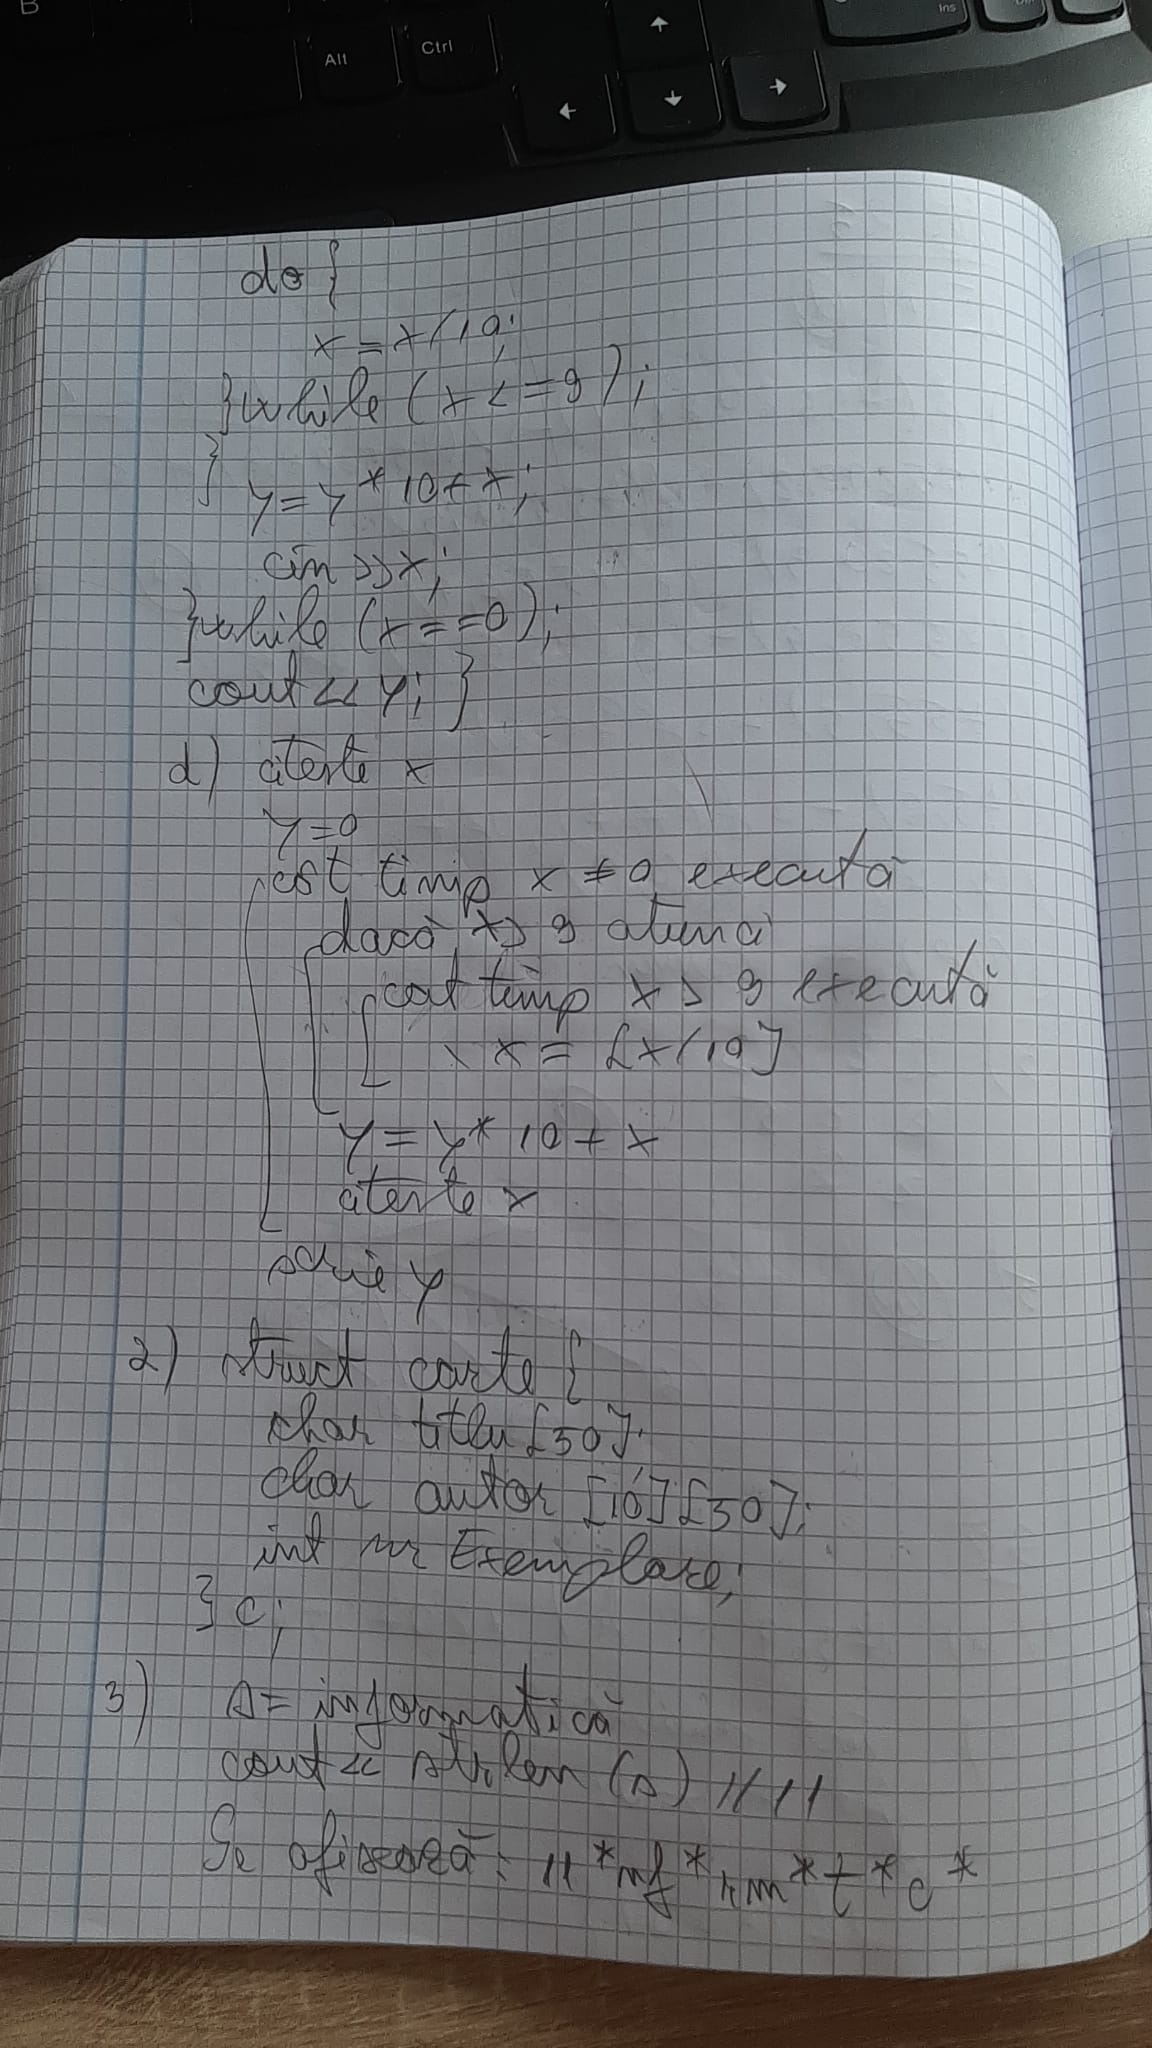 B
Alt
Ctrl
Ins
do {
x = x/10;
}while (x<=9);
}
y=y*10+x;
cin>>x;
}while (x==0);
cout<<y; }
d) citeste x
y=0
cât timp x ≠ 0 executā
dacā x> 9 atunci
cât timp x > 9 executā
x = [x/10]
y = y* 10 + x
citeste x
scrie y
2) struct carte {
char titlu [30];
char autor [10][30];
int nr Exemplare;
} c;
3) s= informatică
cout<< strlen (s) // 11
Se afiseazā: 11 *nf*rm*t*c*